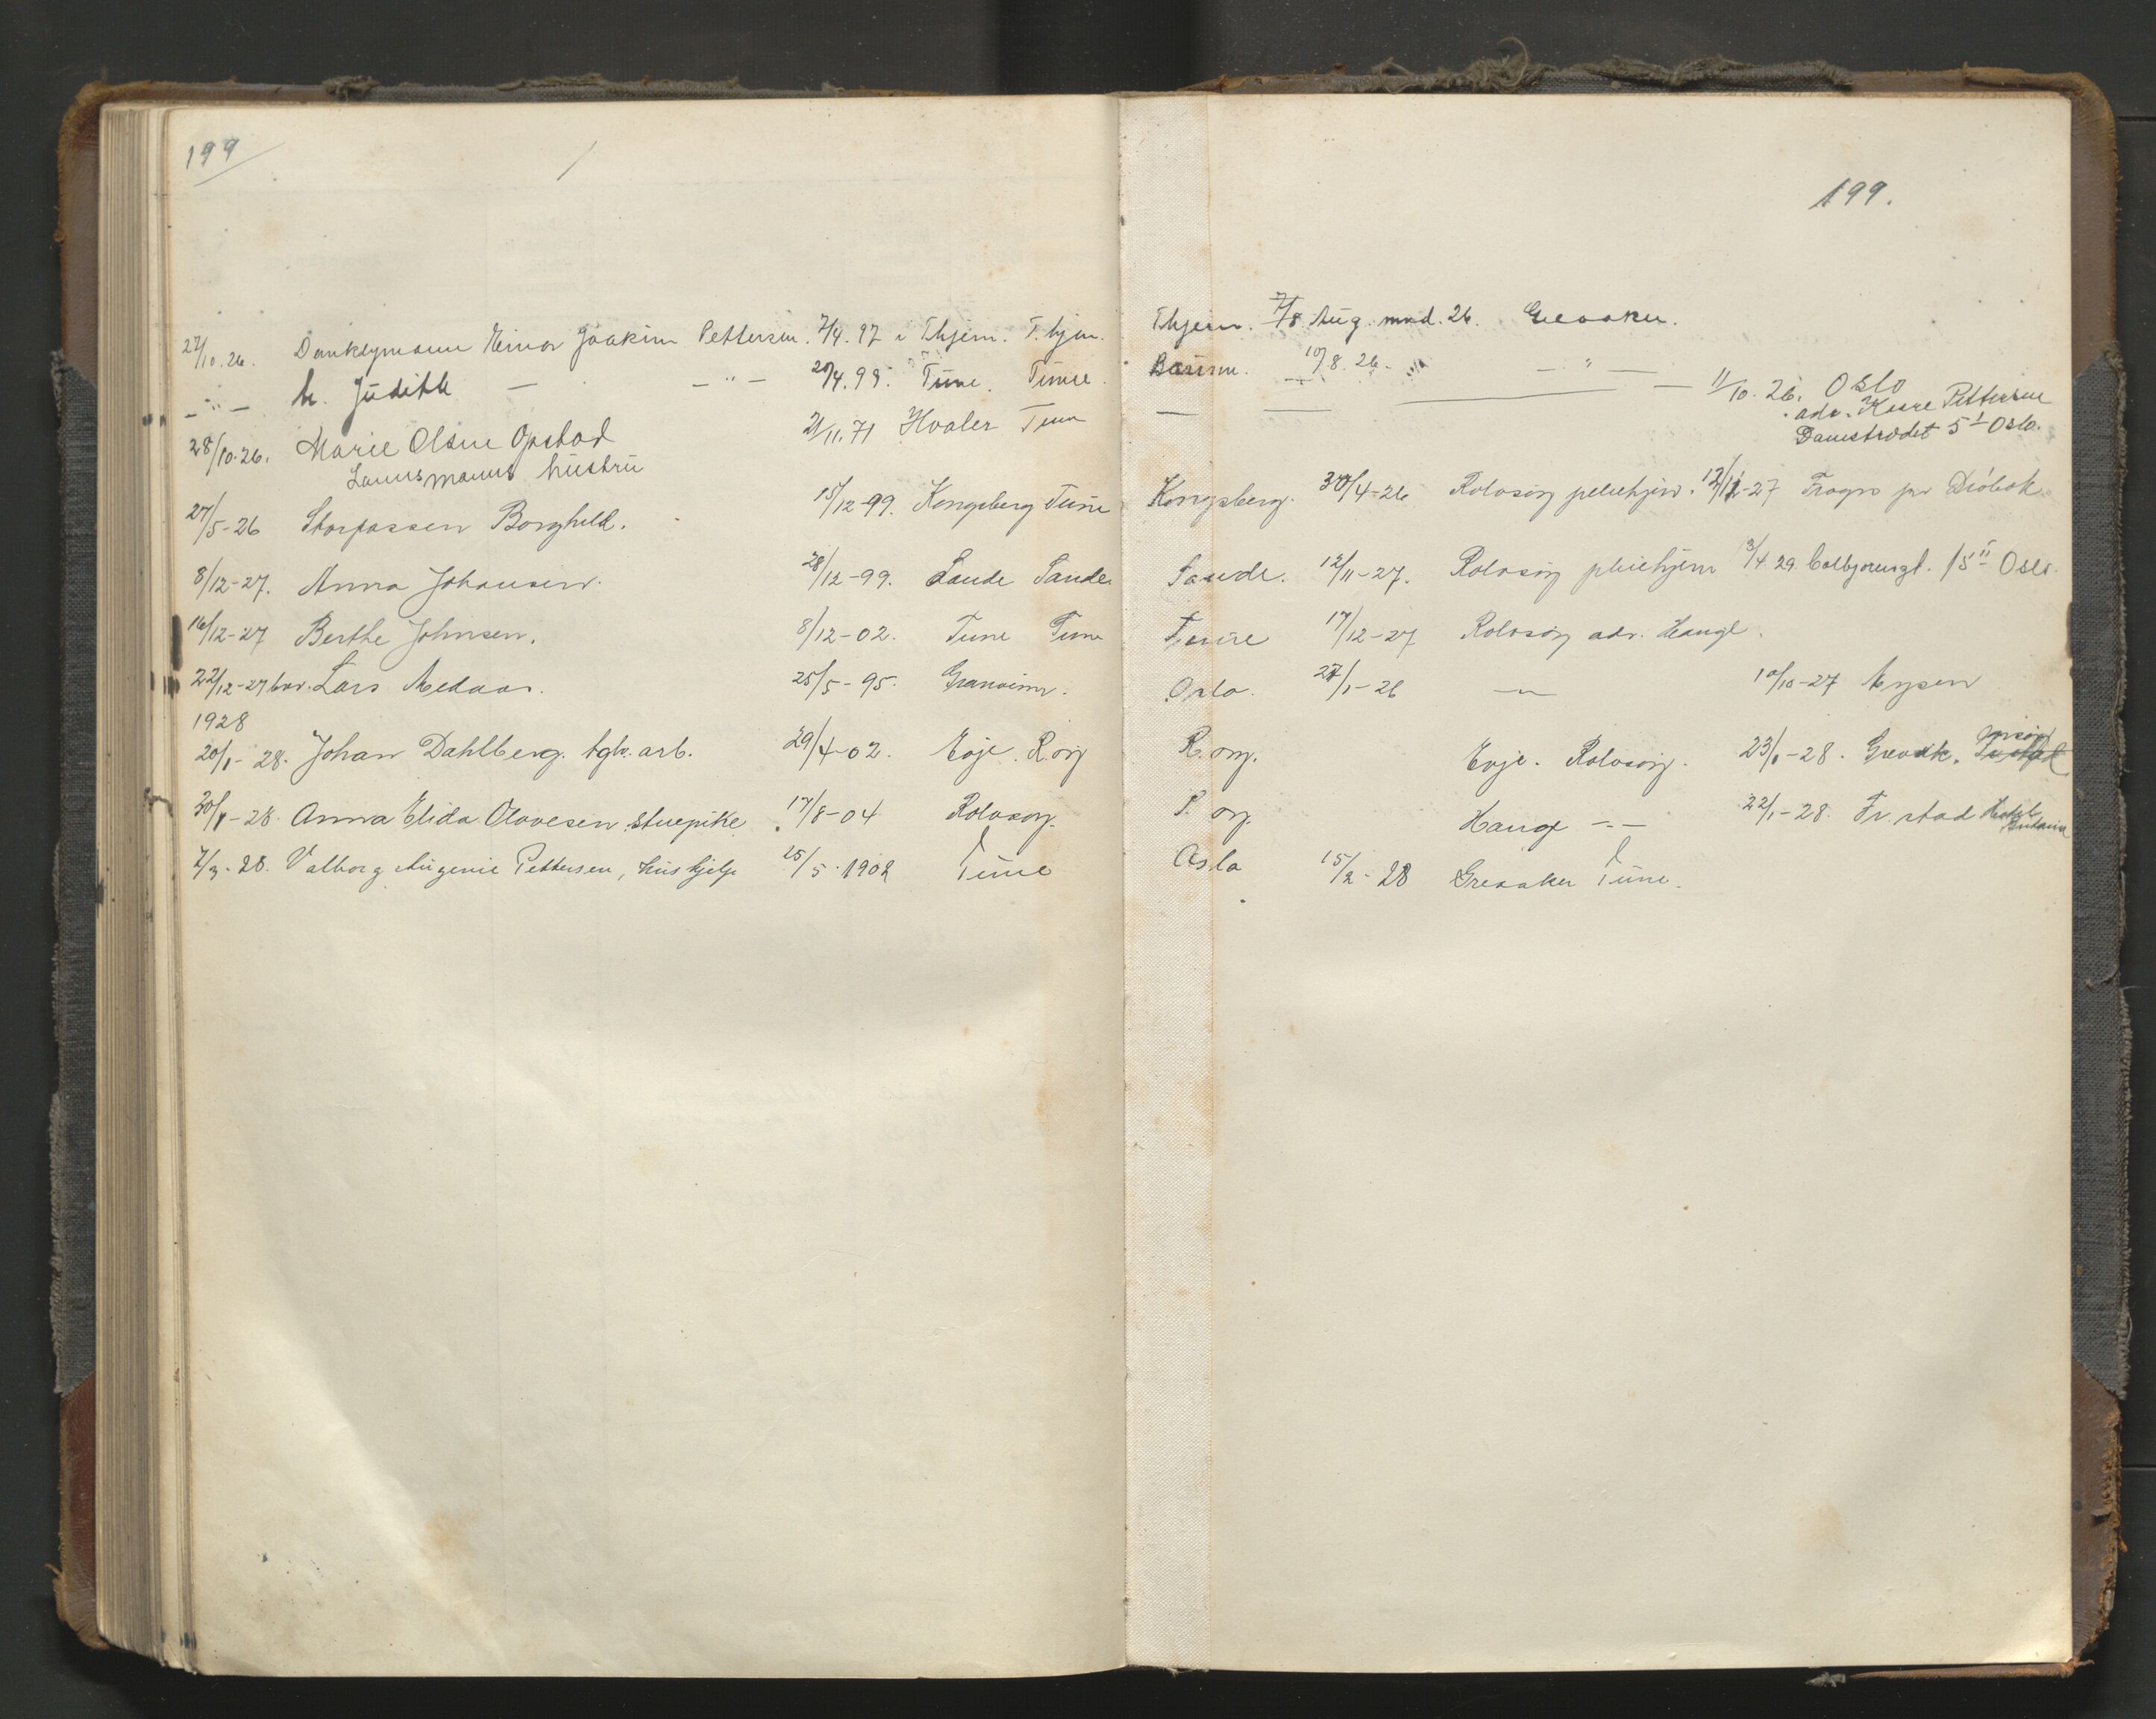 199
199.
27/10.26. Einar Joakim Pettersen. 7/4.97 i Thjem. T.hjem. Thjem. 7/8 Aug. mnd. 26. Greaaker.
— " — h. Judith — — " — 20/4.99. Tune. Tune. 10/8.26. " — " —
28/10.26. Marie Olsen Opstad 21/11.71 Hvaler Tune — — — — 11/10.26. Oslo
Lensmanns hustru adr. Kaare Pettersen
Damstrædet 5 I Oslo.
27/5-26 Borghild. 15/12-99. Kongsberg Tune Kongsberg. 30/4-26 Rolvsøy pleiehjem. 12/11-27 Frogn pr Drøbak
8/12-27. Anna Johansen. 28/12-99. Sande Sande Sande. 12/11-27. Rolvsøy pleiehjem 3/4 29. 15 II Oslo.
16/12-27 Berthe Johnsen. 8/12-02. Tune Tune Tune 17/12-27 Rolvsøy adr. Hauge.
22/12-27 Lars Medaas. 25/5-95. Granvin. Oslo. 27/1-26 — " — 10/10-27 Mysen
1928
20/1-28. Johan Dahlberg. fabr. arb. 29/4-02. Evje. R.øy R.øy. Evje. Rolvsøy. 23/1-28. Greaak.
30/1-28. Anna Elida Olavesen stuepike. 17/8-04 Rolvsøy. R. øy. Hauge — " — 22/1-28. Fr.stad Hotel
7/3-28. Valborg Augenie Pettersen, hushjelp 25/5-1902 Tune Oslo 15/2-28 Greaaker Tune.